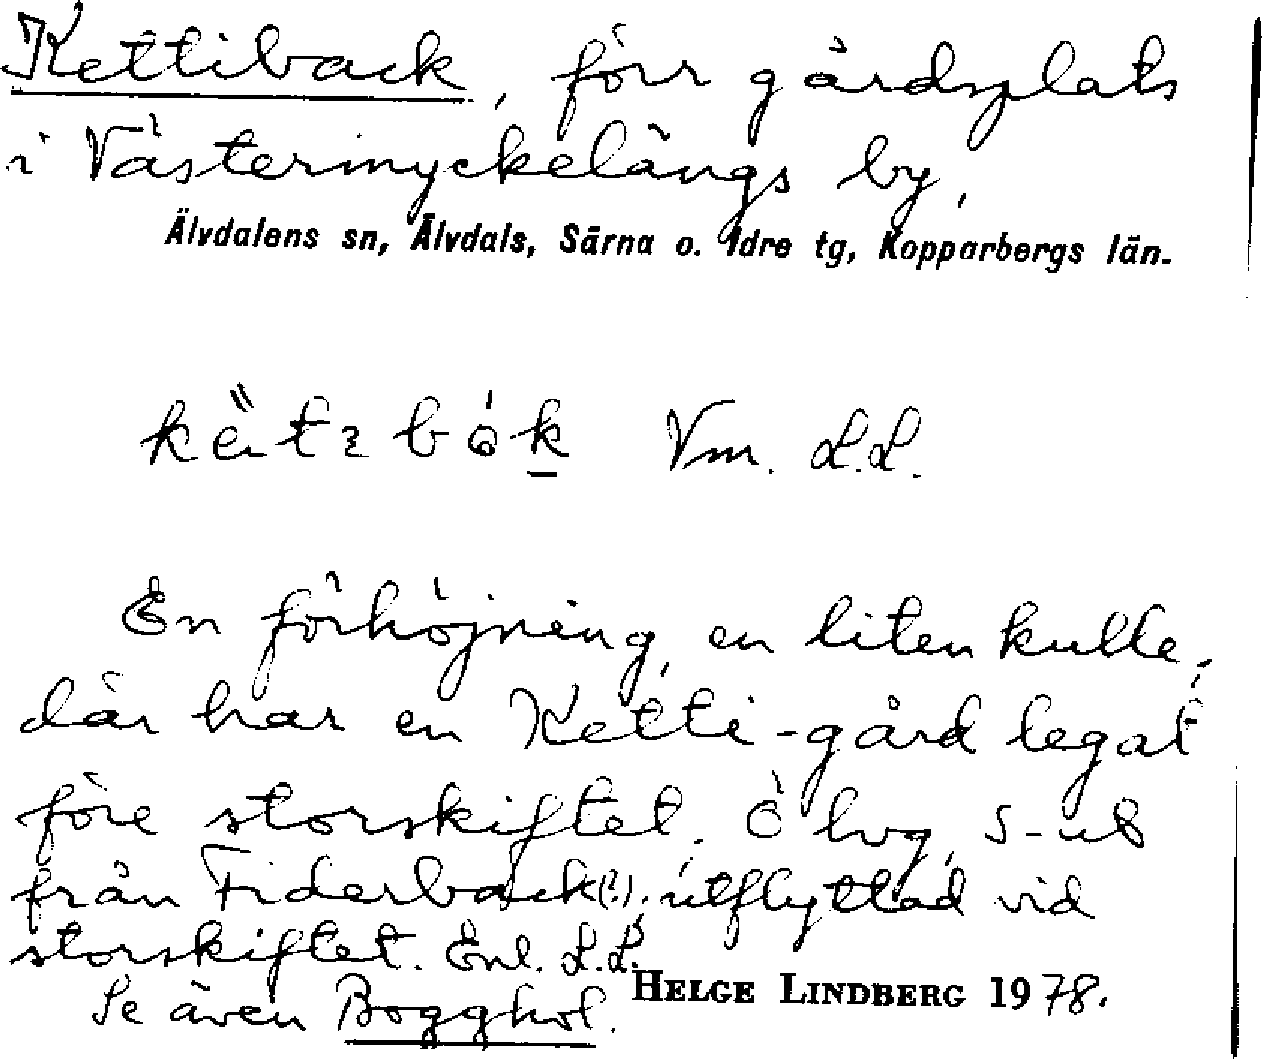 Kettiback, förr gårdsplats
i Västermyckelängs by,
Älvdalens sn, Älvdals, Särna o. Idre tg, Kopparbergs län.
Vm. L.L.
En förhöjning, en liten kulle,
där har en Ketti-gård legat
före storskiftet. Ö lvg, S-ut
från Fiderback(?), utflyttad vid
storskiftet. Enl. L.L.
Se även Bogghol.
HELGE LINDBERG 1978.